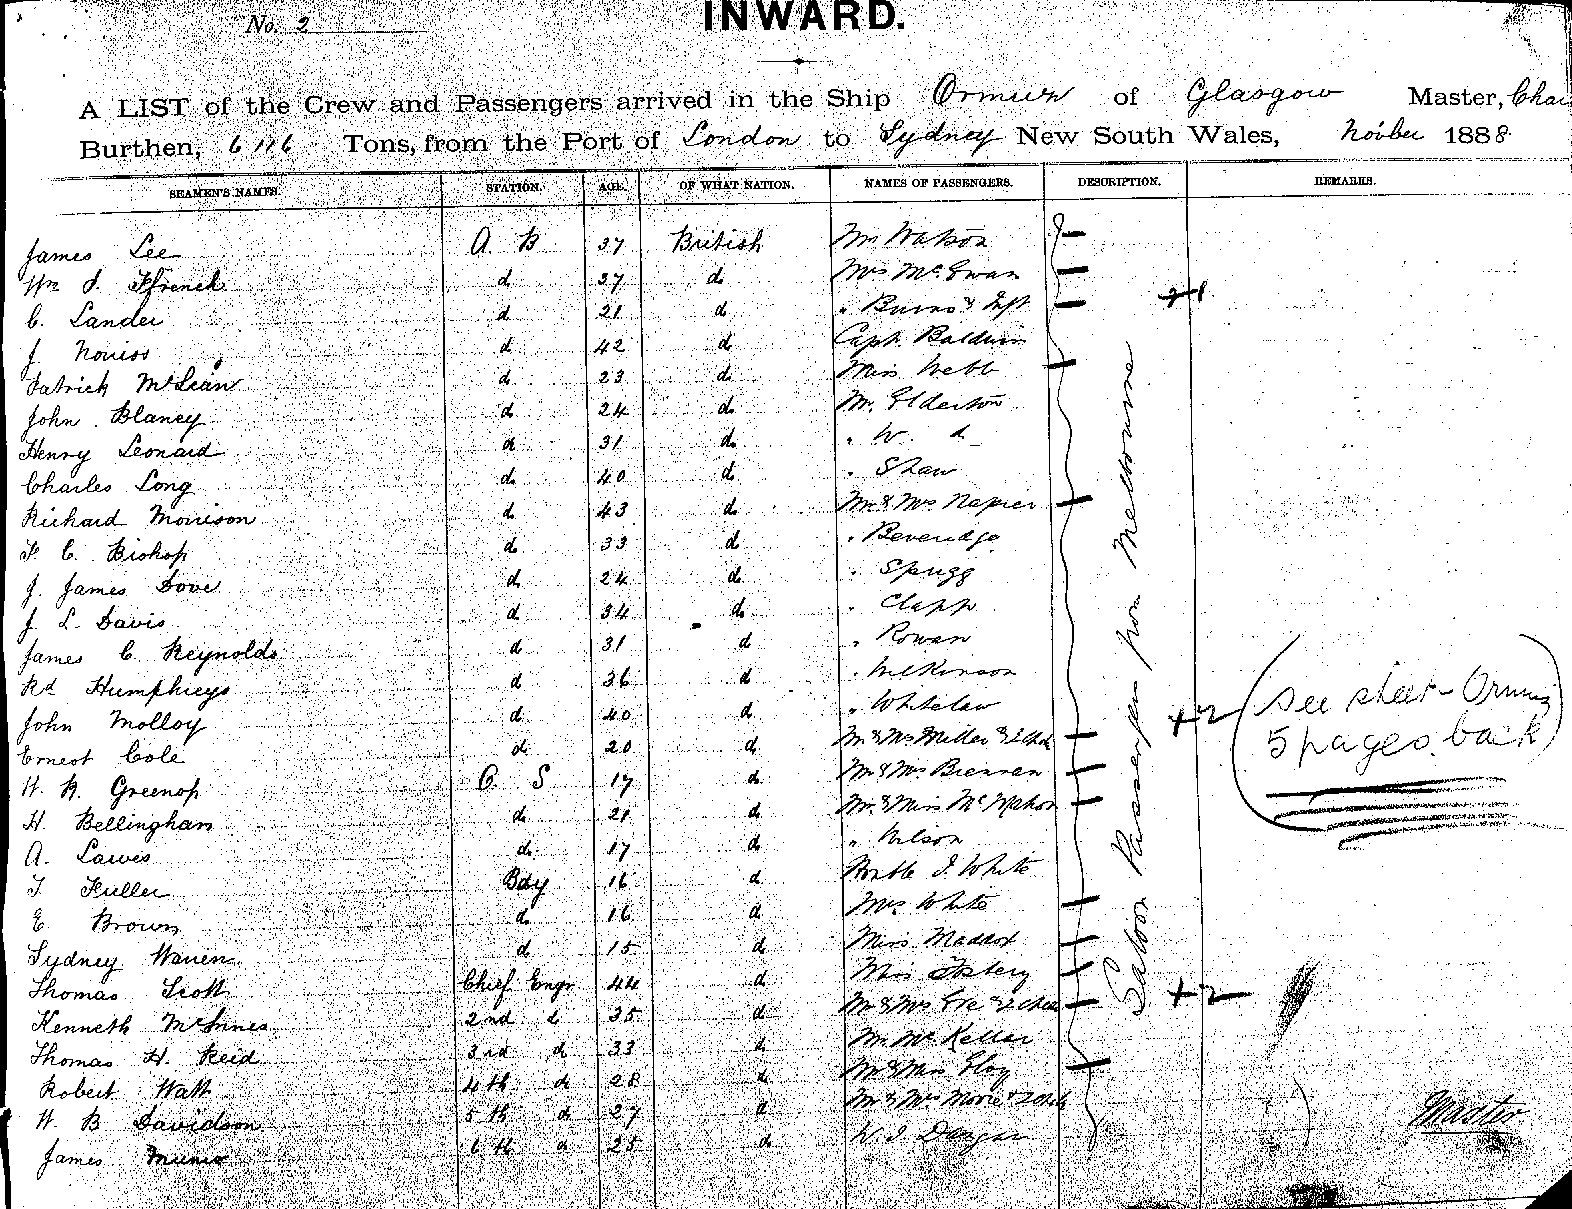 No. 2
INWARD.
A LIST of the Crew and Passengers arrived in the Ship Ormuz of Glasgow Master, Char
Burthen, 6116 Tons, from the Port of London to Sydney New South Wales, Novber 1888
SEAMEN'S NAMES. STATION. AGE. OF WHAT NATION. NAMES OF PASSENGERS. DESCRIPTION. REMARKS.
James Lee A B 37 British Mr Watson
Wm J. Ffrench d 37 d Mrs McEwan
C. Lander d 21 d " Burns & Inft +1
J. Norriss d 42 d Capt. Baldwin
Patrick McLean d 23 d Miss Webb
John Blaney d 24 d Mr. Elderton
Henry Leonard d 31 d " W. d
Charles Long d 40 d " Shaw
Richard Morrison d 43 d Mr & Mrs Napier
F C. Bishop d 33 d " Beveridge
J. James Dove d 24 d " Sprigg
J L. Davis d 34 d " Clapp
James C Reynolds d 31 d " Rowan
Rd Humphreys d 36 d " Wilkinson
John Molloy d 40 d " Whitelaw
Ernest Cole d 20 d Mr & Mrs Miller & 2 Chdn +2
W. R. Greenop O. S 17 d Mr & Mrs Brennan
H. Bellingham d 21 d Mr. & Miss McMahon
A. Lawes d 17 d " Wilson
T Fuller Boy 16 d Honble J. White
E Brown d 16 d Mrs White
Sydney Warren d 15 d Miss Maddox
Thomas Scott Chief Engr 44 d Miss Fosbery
Kenneth McInnes 2nd d 35 d Mr & Mrs & 2 Chdn +2
Thomas H. Reid 3rd d 33 d Mr. McKellar
Robert Watt 4th d 28 d Mr & Mrs
W. B Davidson 5th d 27 d Mr & Mrs & 2 Chdn
James Munro 6th d 25 d W. J
Saloon Passengers from Melbourne
(see sheet - Ormuz
5 pages back)
Master